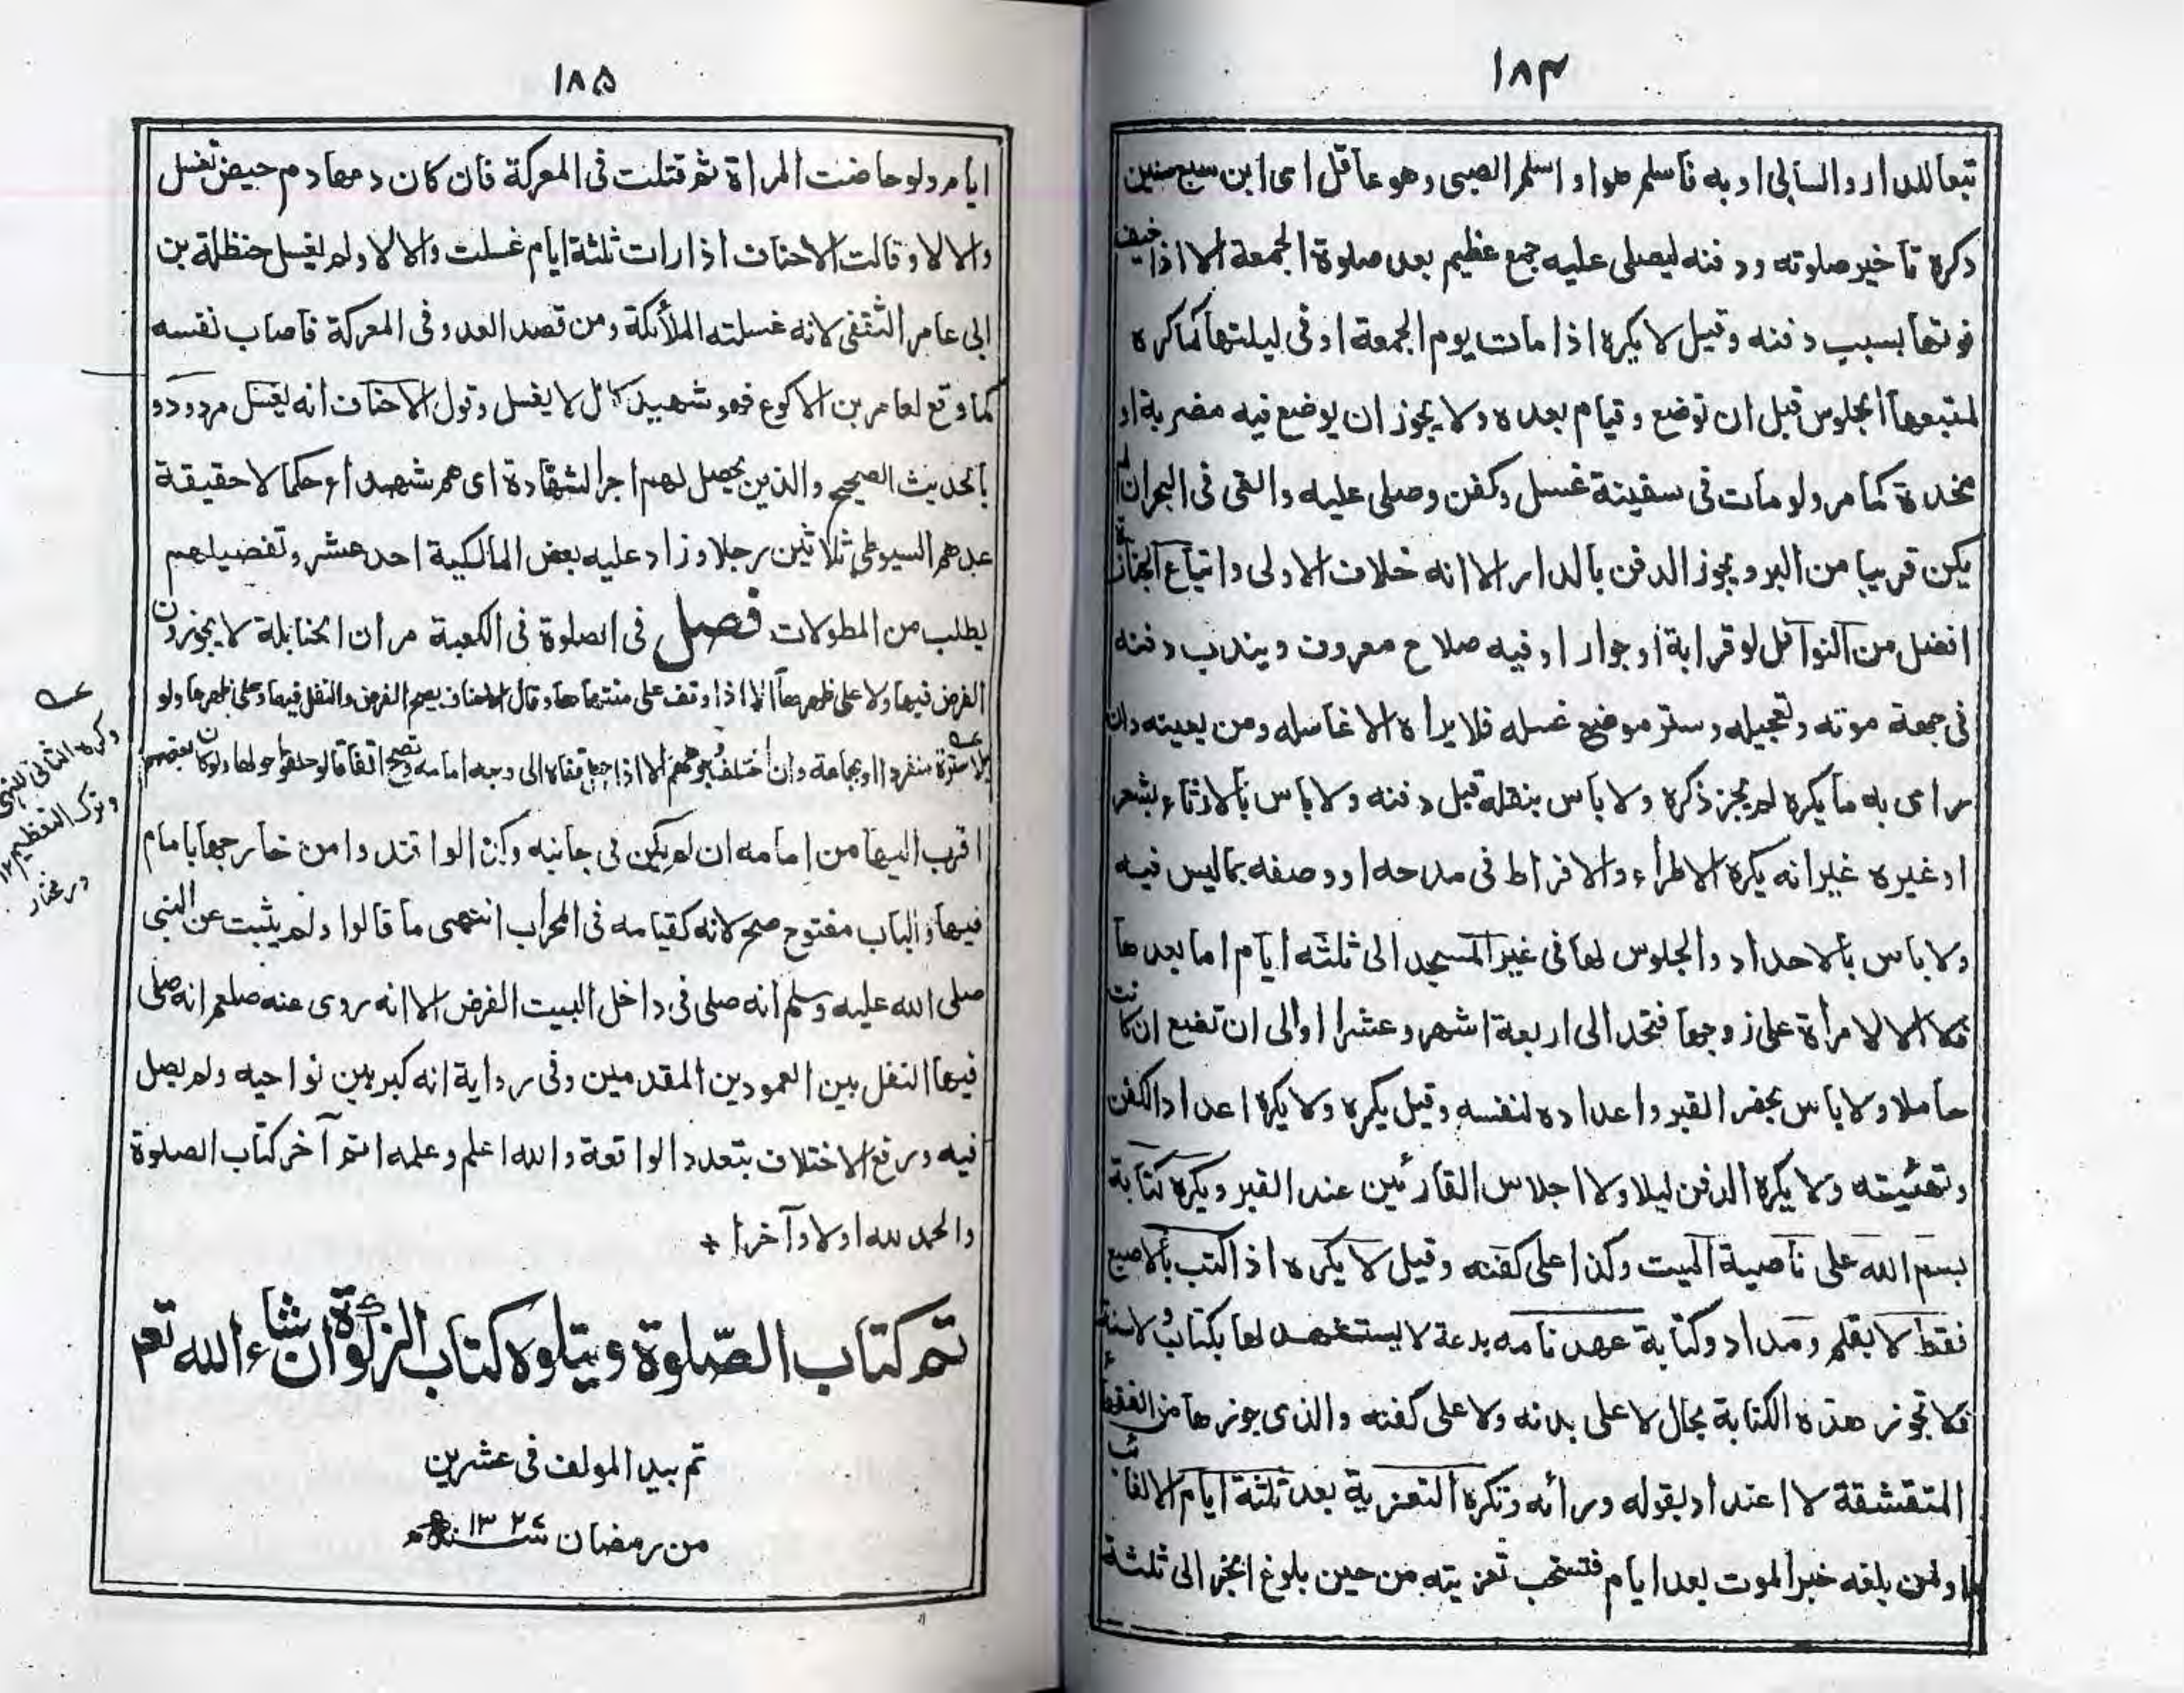 ١٨٤
تبعا للدار والسابي او به فاسلم هو او اسلم الصبي وهو عاقل اى ابن سبع سنين
وكره تأخير صلوته ودفنه ليصلى عليه جمع عظيم بعد صلوة الجمعة الا اذا خيف
فوتها بسبب دفنه وقيل لا يكره اذا مات يوم الجمعة او في ليلتها كما كره
لمتبعها الجلوس قبل ان توضع وقيام بعده ولا يجوز ان يوضع فيه مضربة او
مخدة كما مر ولو مات فى سفينة غسل وكفن وصلى عليه والقى فى البحر ان لم
يكن قريبا من البر ويجوز الدفن بالدار الا انه خلاف الاولى واتباع الجنائز
افضل من النوافل لو قرابة او جوار او فيه صلاح معروف ويندب دفنه
فى جمعة موته وتعجيله وستر موضع غسله فلا يراه الا غاسله ومن يعينه وان
راى به ما يكره لم يجز ذكره ولا باس بنقله قبل دفنه ولا باس بالارثاء بشعر
او غيره غير انه يكره الاطراء والافراط فى مدحه او وصفه بما ليس فيه
ولا باس بالاحداد والجلوس لها فى غير المسجد الى ثلثة ايام اما بعدها
فلا الا لامرأة على زوجها فتحد الى اربعة اشهر وعشرا او الى ان تضع ان كانت
حاملا ولا باس بحفر القبر واعداده لنفسه وقيل يكره ولا يكره اعداد الكفن
وتهيئته ولا يكره الدفن ليلا ولا اجلاس القارئين عند القبر ويكره كتابة
بسم الله على ناصية الميت وكذا على كفنه وقيل لا يكره اذا كتب بالاصبع
فقط لا بقلم ومداد وكتابة عهد نامه بدعة لا يستشهد لها بكتاب ولا سنة
فلا تجوز هذه الكتابة بحال لا على بدنه ولا على كفنه والذى جوزها من الفقهاء
المتقشفة لا اعتداد بقوله ورائه وتكره التعزية بعد ثلثة ايام الا لغائب
او لمن بلغه خبر الموت بعد ايام فتستحب تعزيته من حين بلوغ الخبر الى ثلثة
١٨٥
ايام ولو حاضت المراة ثم قتلت فى المعركة فان كان دمها دم حيض تغسل
والا لا وقالت الاحناف اذا رات ثلثة ايام غسلت والا لا ولم يغسل حنظلة بن
ابى عامر الثقفى لانه غسلته الملائكة ومن قصد العدو فى المعركة فاصاب نفسه
كما وقع لعامر بن الاكوع فهو شهيد كامل لا يغسل وقول الاحناف انه يغسل مردود
بالحديث الصحيح والذين يحصل لهم اجر الشهادة اى هم شهداء حكما لا حقيقة
عدهم السيوطى ثلاثين رجلا وزاد عليه بعض المالكية احد عشر وتفصيلهم
يطلب من المطولات فصل فى الصلوة فى الكعبة مر ان الحنابلة لا يجوزون
الفرض فيها ولا على ظهرها الا اذا وقف على منتهاها وقال الاحناف يصح الفرض والنفل فيها وعلى ظهرها ولو
بلا سترة منفردا او بجماعة وان اختلف وجوههم الا اذا جعل قفاه الى وجه امامه وتصح اتفاقا لو حلقوا حولها ولو كان بعضهم
اقرب اليها من امامه ان لم يكن فى جانبه وكذا لو اقتدوا من خارجها بامام
فيها والباب مفتوح صح لانه كقيامه فى المحراب انتهى ما قالوا ولم يثبت عن النبى
صلى الله عليه وسلم انه صلى فى داخل البيت الفرض الا انه روى عنه صلعم انه صلى
فيها النفل بين العمودين المقدمين وفى رواية انه كبر بين نواحيه ولم يصل
فيه ورفع الاختلاف بتعدد الواقعة والله اعلم وعلمه اتم آخر كتاب الصلوة
والحمد لله اولا وآخرا +
تم كتاب الصلوة ويتلوه كتاب الزكوة ان شاء الله تعم
تم بيد المولف فى عشرين
من رمضان سنه
وكره الثانى للنهى
وترك التعظيم ١٢
در مختار